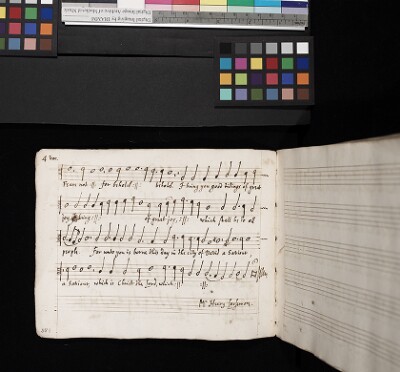 4 Voc.
Feare not :||: for behold :||: behold I bring you good tidings of great
joy I bring :||: of great joy, :||: which shall be to all
people. for unto you is borne this day in the city of David a Saviour
a Saviour, which is Christ the Lord, which :||: :||:
Mr Henry